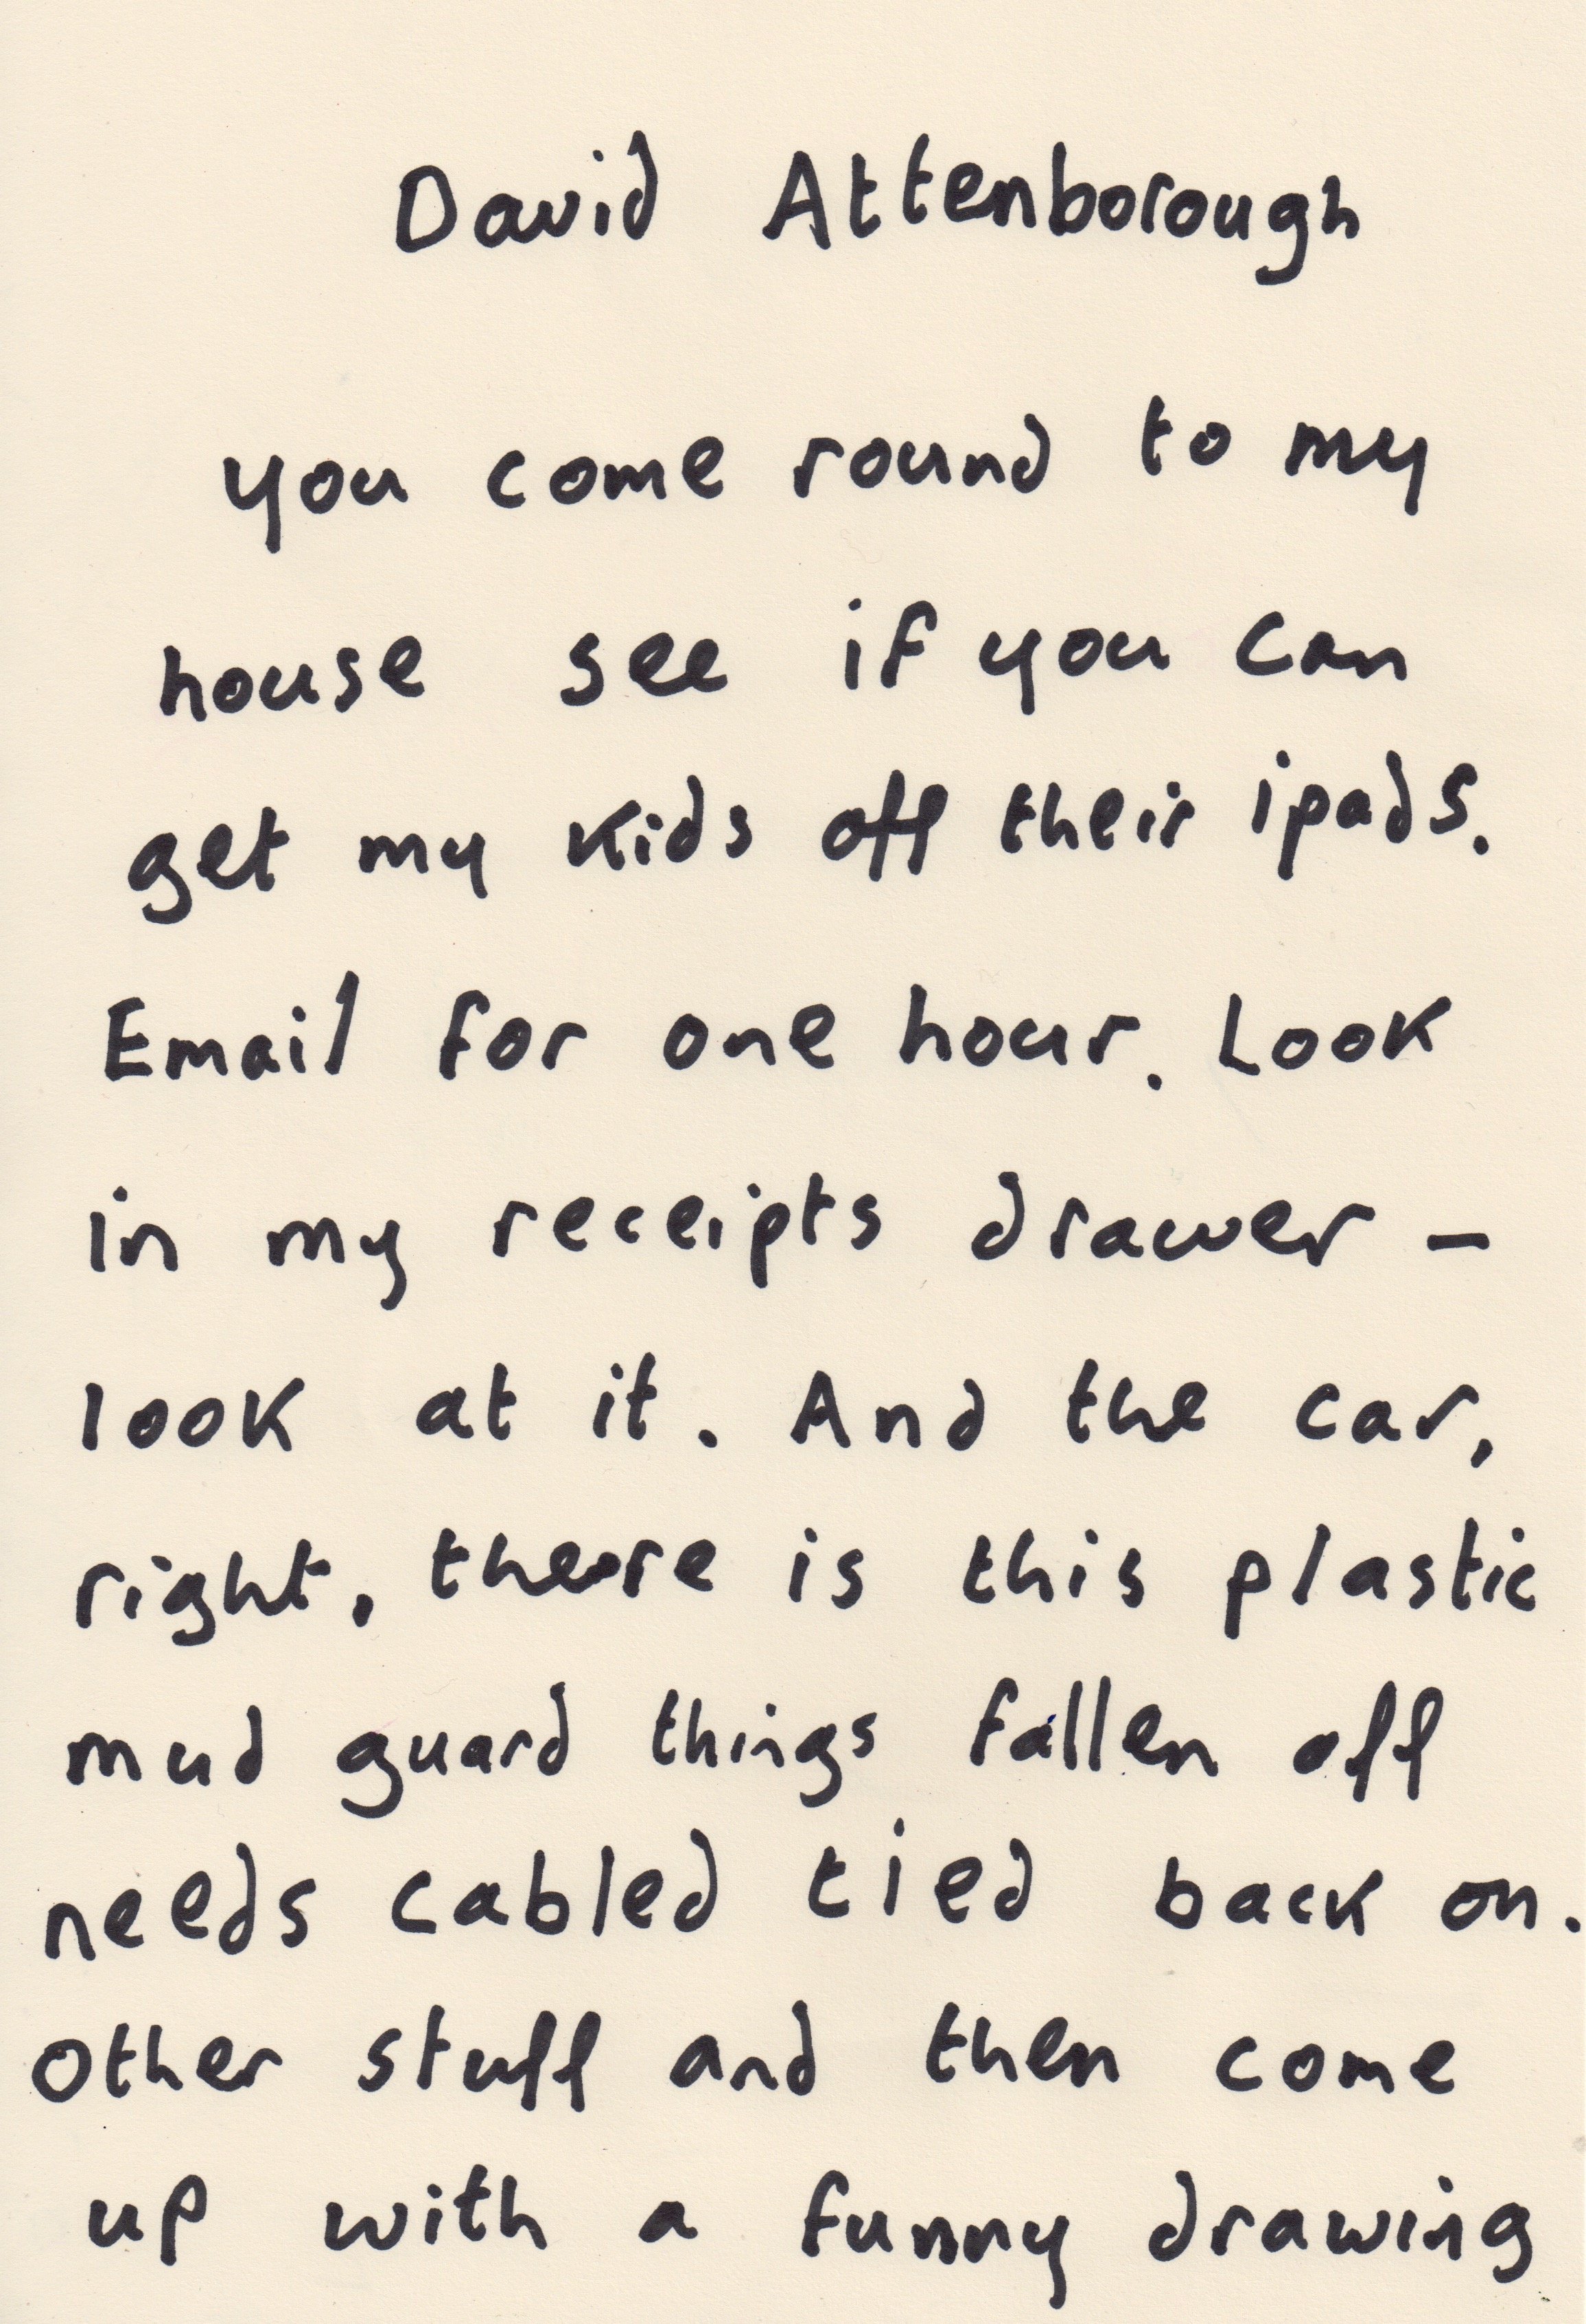 David Attenborough
you come round to my
house see if you can
get my kids off their ipads.
Email for one hour. Look
in my receipts drawer -
look at it. And the car,
right, there is this plastic
mud guard things fallen off
needs cabled tied back on.
Other stuff and then come
up with a funny drawing